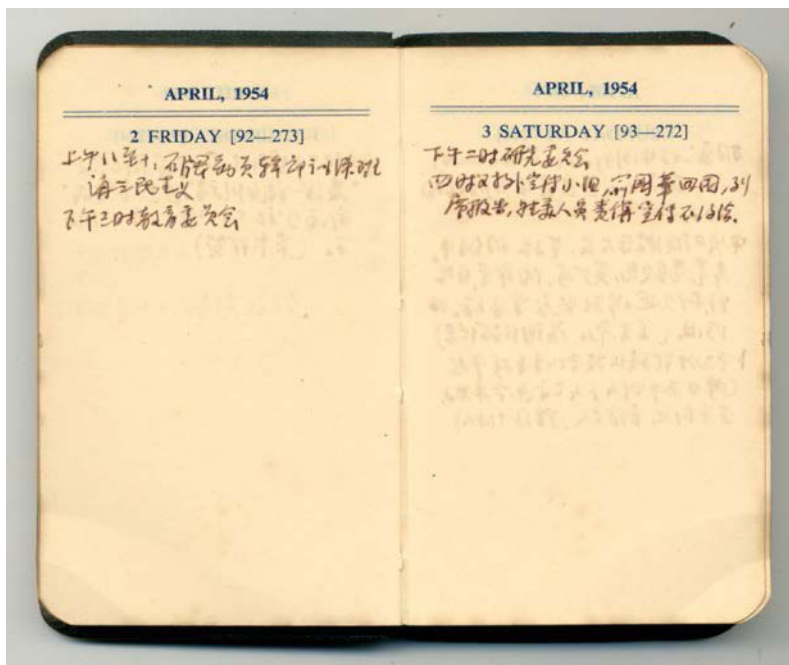 APRIL, 1954
2 FRIDAY [92—273]
上午八至十,石牌动员干部训练班
讲三民主义
下午三时教育委员会
APRIL, 1954
3 SATURDAY [93—272]
下午二时研究委员会
四时对外宣传小组,俞国华回国,列
席报告,驻美人员责备宣传不得法.